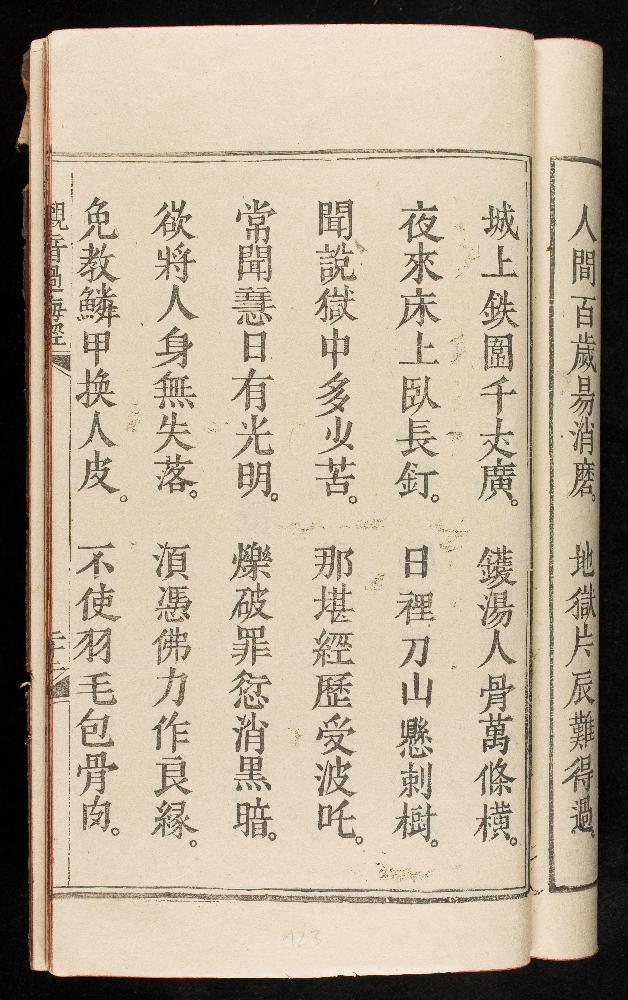 人間百歲易消磨。地獄片辰難得過。
城上鉄圍千丈廣。鑊湯人骨萬條橫。
夜來床上臥長釘。日裡刀山懸刺樹。
聞說獄中多少苦。那堪經歷受波吒。
常聞慧日有光明。爍破罪愆消黑暗。
欲將人身無失落。須憑佛力作良緣。
免教鱗甲換人皮。不使羽毛包骨肉。
觀音過海經